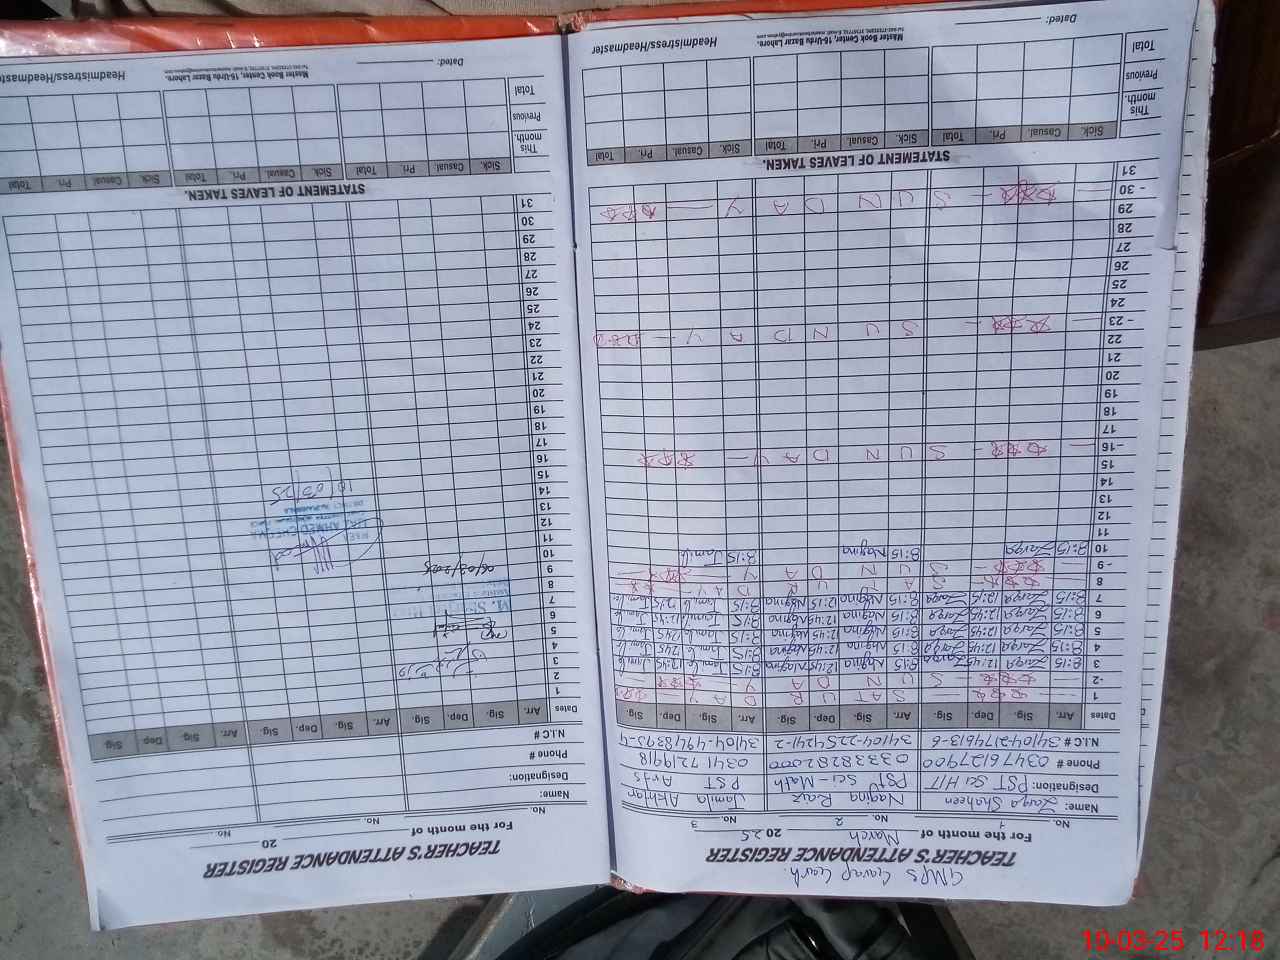 GMPS
TEACHER'S ATTENDANCE REGISTER
For the month of March 2025
No. 1 No. 2 No. 3
Name: Zarqa Shaheen Nagina Riaz Jamila Akhtar
Designation: PST Sci H/T PST Sci-Math PST Arts
Phone # 03476127900 0338282000 03417219918
N.I.C # 34104-2174613-6 34104-2254241-2 34104-4948395-4
Dates Arr. Sig. Dep. Sig. Arr. Sig. Dep. Sig. Arr. Sig. Dep. Sig.
1 SATURDAY
2 SUNDAY
3 8:15 Zarqa 12:45 Zarqa 8:15 Nagina 12:45 Nagina 8:15 Jamila 12:45 Jamila
4 8:15 Zarqa 12:45 Zarqa 8:15 Nagina 12:45 Nagina 8:15 Jamila 12:45 Jamila
5 8:15 Zarqa 12:45 Zarqa 8:15 Nagina 12:45 Nagina 8:15 Jamila 12:45 Jamila
6 8:15 Zarqa 12:45 Zarqa 8:15 Nagina 12:45 Nagina 8:15 Jamila 12:45 Jamila
7 8:15 Zarqa 12:15 Zarqa 8:15 Nagina 12:15 Nagina 8:15 Jamila 12:15 Jamila
8 SATURDAY
9 SUNDAY
10 8:15 Zarqa 8:15 Nagina 8:15 Jamila
11
12
13
14
15
16 SUNDAY
17
18
19
20
21
22
23 SUNDAY
24
25
26
27
28
29
30 SUNDAY
31
STATEMENT OF LEAVES TAKEN.
Sick. Casual. Pri. Total Sick. Casual. Pri. Total Sick. Casual. Pri. Total
This month.
Previous
Total
Dated:
Master Book Center, 16-Urdu Bazar Lahore.
Headmistress/Headmaster
TEACHER'S ATTENDANCE REGISTER
For the month of 20
No. No.
Name:
Designation:
Phone #
N.I.C #
Dates Arr. Sig. Dep. Sig. Arr. Sig. Dep Sig.
1
2
3
4
5
6
7
8
9
10
11
12
13
14
15
16
17
18
19
20
21
22
23
24
25
26
27
28
29
30
31
06/03/2025
AHMED CHEEMA
10/03/25
STATEMENT OF LEAVES TAKEN.
Sick. Casual Pri. Total Sick. Casual. Pri. Total
This month.
Previous
Total
Dated:
Master Book Center, 16-Urdu Bazar Lahore.
Headmistress/Headmaster
10-03-25 12:18